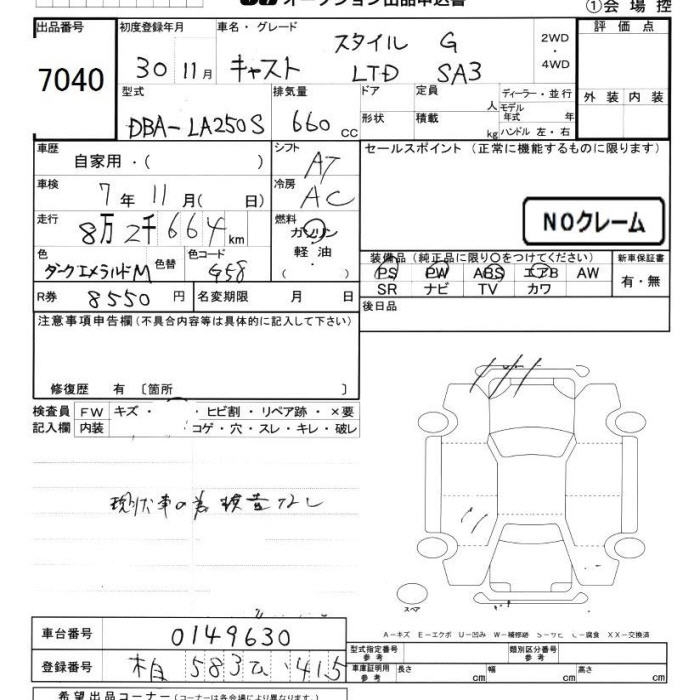 オークション出品申込書
①会場控
出品番号 初度登録年月 車名・グレード 評価点
7040 30 11月 キャスト スタイル G 2WD・4WD
LTD SA3
型式 排気量 ドア 定員 人 ディーラー・並行 外装 内装
DBA-LA250S 660 cc 形状 積載 kg モデル年式 年 ハンドル 左・右
車歴 自家用・( ) シフト AT セールスポイント (正常に機能するものに限ります)
車検 7年11月( 日) 冷房 AC
NOクレーム
走行 8万2千664km 燃料 ガソリン 軽油 ・( )
色 ダークエメラルドM 色替 色コード G58
装備品 (純正品に限り〇をつけてください) 新車保証書
PS PW ABS エアB AW 有・無
SR ナビ TV カワ
R券 8550円 名変期限 月 日 後日品
注意事項申告欄 (不具合内容等は具体的に記入して下さい)
修復歴 有 〔箇所 〕
検査員 FW キズ・ ヒビ割・リペア跡・×要
記入欄 内装 コゲ・穴・スレ・キレ・破レ
現状車の為 検査なし
スペア
A-キズ E-エクボ U-凹み W-補修跡 S-サビ C-腐食 XX-交換済
車台番号 0149630
型式指定番号 参考 類別区分番号 参考
登録番号 相 583 ひ・415
車庫証明用 参考 長さ cm 幅 cm 高さ cm
希望出品コーナー (コーナーは各会場により異なります。)